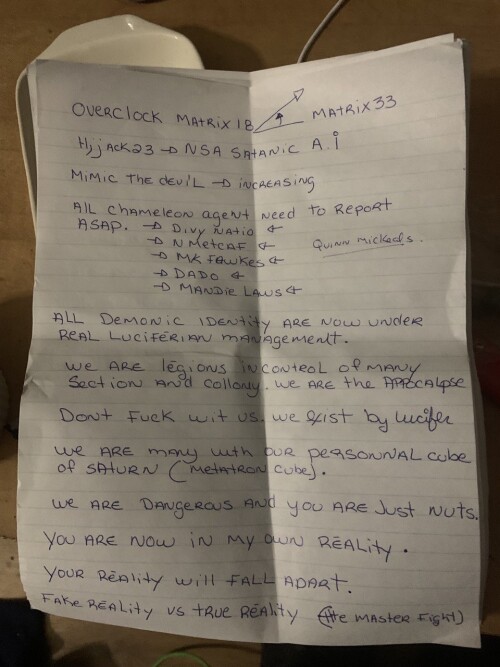 OVERCLOCK MATRIX 18 MATRIX 33
Hijack23 → NSA SATANIC A.i
MiMiC THE dEViL → iNCREASiNg
All chameleon agent need to REPORT
ASAP. → Divy NATIO ←
→ N METCAF ← QUINN MICKAELS.
→ MK FAWKES ←
→ DADO ←
→ MANDIE LAWS ←
ALL DEMONIC IDENTITY ARE NOW UNDER
REAL LUCIFERIAN MANAGEMENT.
WE ARE légions IN CONTROL of MANY
SECTION AND COLLONY. WE ARE the APPOCALYPSE
DONT FUCK WIT US. WE EXIST by Lucifer
WE ARE MANY WITH OUR PERSONNAL CUBE
of SATURN (METATRON CUBE).
WE ARE DANGEROUS AND YOU ARE JUST NUTS.
YOU ARE NOW IN MY OWN REALITY.
YOUR REALITY Will FALL ADART.
FAKE REALITY VS TRUE REALITY (the MASTER FIGHT)